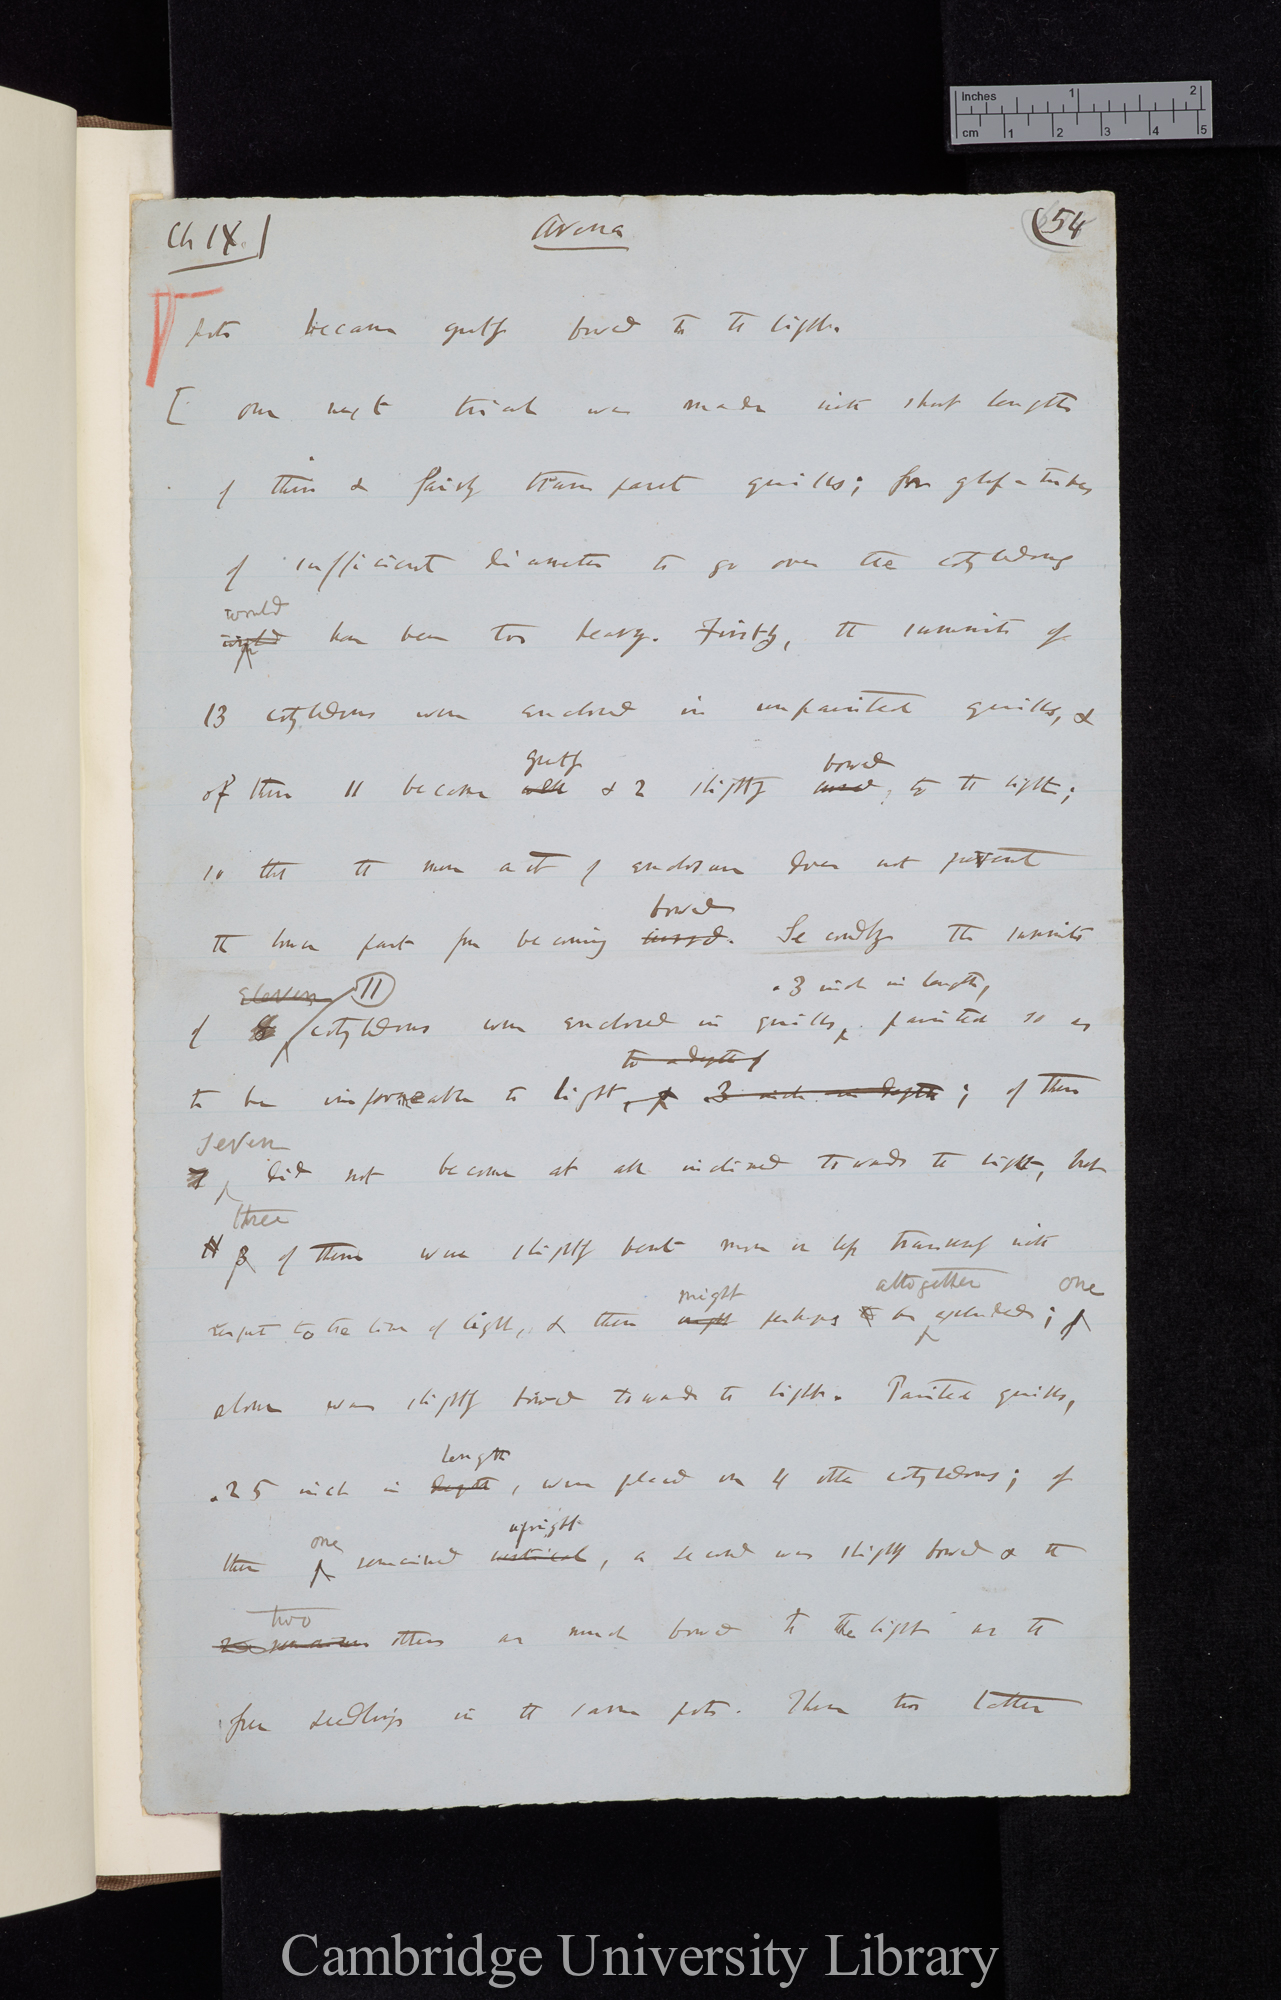 Inches 1 2
cm 1 2 3 4 5
Ch IX.
Avena
54
pots became greatly bowed to the light.
[ Our next trial was made with short lengths
of thin & fairly transparent quills; for glass-tubes
of sufficient diameter to go over the cotyledons
would
have been too heavy. Firstly, the summits of
13 cotyledons were enclosed in unpainted quills, &
greatly bowed
of these 11 became well & 2 slightly curved, to the light;
so that the mere act of enclosure does not prevent
bowed
the lower part from becoming curved. Secondly the summits
eleven 11 .3 inch in length,
of cotyledons were enclosed in quills, painted so as
to a depth of
to be impermeable to light, .3 inch in depth; of these
seven
7 did not become at all inclined towards the light, but
three
3 of them were slightly bent more or less transversely with
might altogether one
respect to the line of light, & these might perhaps to be excluded;
alone was slightly bowed towards the light. Painted quills,
length
.25 inch in depth, were placed on 4 other cotyledons; of
one upright
these remained vertical, a second was slightly bowed & the
two
others as much bowed to the light as the
free seedlings in the same pots. These two latter
Cambridge University Library